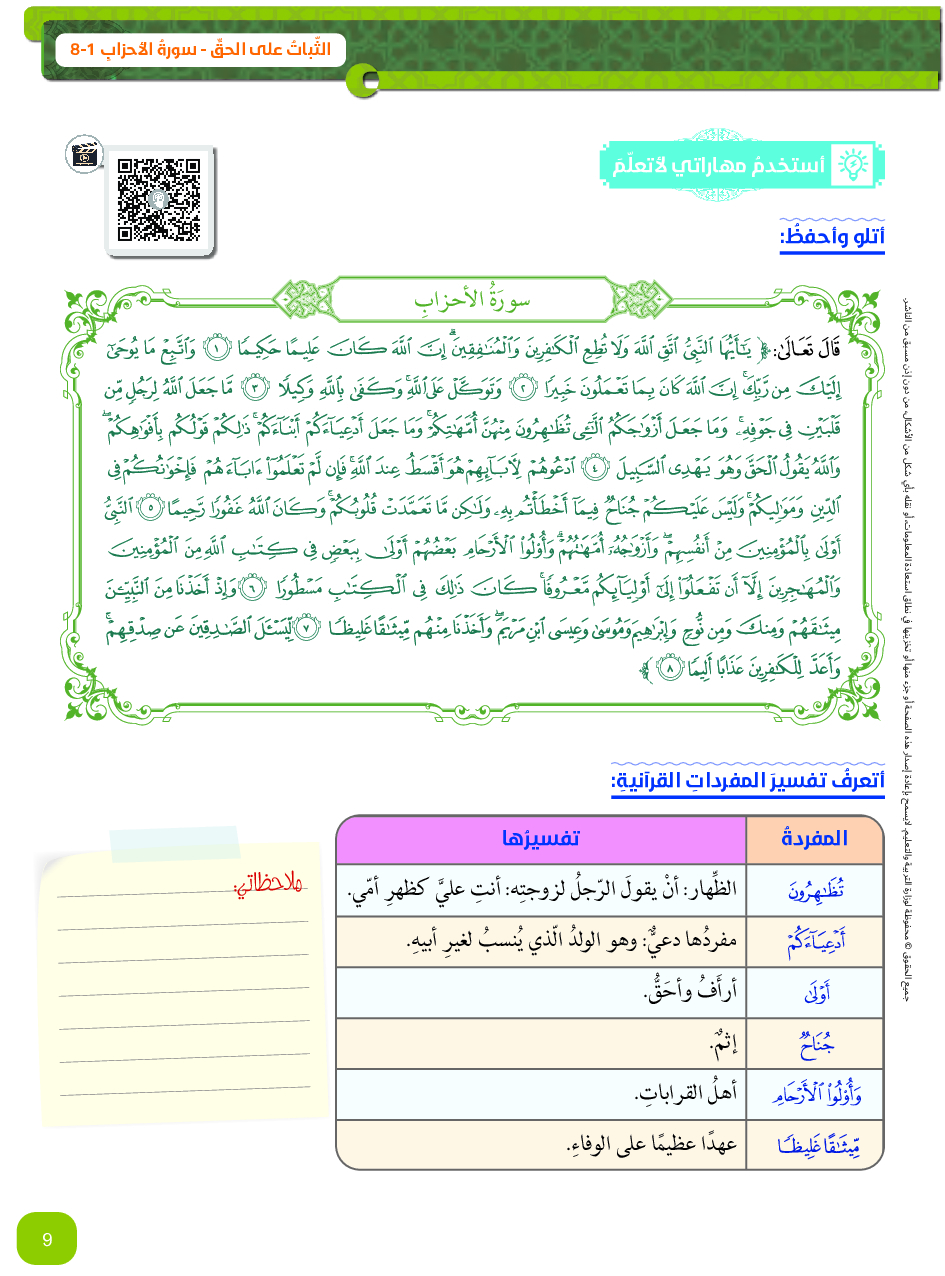 الثّباتُ على الحقِّ - سورةُ الأحزابِ 1-8
أستخدمُ مهاراتي لأتعلّمَ
أتلو وأحفظُ:
سورَةُ الأحزابِ
قَالَ تَعَالَىٰ: ﴿ يَـٰٓأَيُّهَا ٱلنَّبِىُّ ٱتَّقِ ٱللَّهَ وَلَا تُطِعِ ٱلْكَـٰفِرِينَ وَٱلْمُنَـٰفِقِينَ ۗ إِنَّ ٱللَّهَ كَانَ عَلِيمًا حَكِيمًا ١ وَٱتَّبِعْ مَا يُوحَىٰٓ
إِلَيْكَ مِن رَّبِّكَ ۚ إِنَّ ٱللَّهَ كَانَ بِمَا تَعْمَلُونَ خَبِيرًا ٢ وَتَوَكَّلْ عَلَى ٱللَّهِ ۚ وَكَفَىٰ بِٱللَّهِ وَكِيلًا ٣ مَّا جَعَلَ ٱللَّهُ لِرَجُلٍ مِّن
قَلْبَيْنِ فِى جَوْفِهِۦ ۚ وَمَا جَعَلَ أَزْوَٰجَكُمُ ٱلَّـٰٓـِٔى تُظَـٰهِرُونَ مِنْهُنَّ أُمَّهَـٰتِكُمْ ۚ وَمَا جَعَلَ أَدْعِيَآءَكُمْ أَبْنَآءَكُمْ ۚ ذَٰلِكُمْ قَوْلُكُم بِأَفْوَٰهِكُمْ ۖ
وَٱللَّهُ يَقُولُ ٱلْحَقَّ وَهُوَ يَهْدِى ٱلسَّبِيلَ ٤ ٱدْعُوهُمْ لِـَٔابَآئِهِمْ هُوَ أَقْسَطُ عِندَ ٱللَّهِ ۚ فَإِن لَّمْ تَعْلَمُوٓا۟ ءَابَآءَهُمْ فَإِخْوَٰنُكُمْ فِى
ٱلدِّينِ وَمَوَٰلِيكُمْ ۚ وَلَيْسَ عَلَيْكُمْ جُنَاحٌ فِيمَآ أَخْطَأْتُم بِهِۦ وَلَـٰكِن مَّا تَعَمَّدَتْ قُلُوبُكُمْ ۚ وَكَانَ ٱللَّهُ غَفُورًا رَّحِيمًا ٥ ٱلنَّبِىُّ
أَوْلَىٰ بِٱلْمُؤْمِنِينَ مِنْ أَنفُسِهِمْ ۖ وَأَزْوَٰجُهُۥٓ أُمَّهَـٰتُهُمْ ۗ وَأُو۟لُوا۟ ٱلْأَرْحَامِ بَعْضُهُمْ أَوْلَىٰ بِبَعْضٍ فِى كِتَـٰبِ ٱللَّهِ مِنَ ٱلْمُؤْمِنِينَ
وَٱلْمُهَـٰجِرِينَ إِلَّآ أَن تَفْعَلُوٓا۟ إِلَىٰٓ أَوْلِيَآئِكُم مَّعْرُوفًا ۚ كَانَ ذَٰلِكَ فِى ٱلْكِتَـٰبِ مَسْطُورًا ٦ وَإِذْ أَخَذْنَا مِنَ ٱلنَّبِيِّـۧنَ
مِيثَـٰقَهُمْ وَمِنكَ وَمِن نُّوحٍ وَإِبْرَٰهِيمَ وَمُوسَىٰ وَعِيسَى ٱبْنِ مَرْيَمَ ۖ وَأَخَذْنَا مِنْهُم مِّيثَـٰقًا غَلِيظًا ٧ لِّيَسْـَٔلَ ٱلصَّـٰدِقِينَ عَن صِدْقِهِمْ ۚ
وَأَعَدَّ لِلْكَـٰفِرِينَ عَذَابًا أَلِيمًا ٨ ﴾
أتعرفُ تفسيرَ المفرداتِ القرآنيةِ:
المفردةُ تفسيرُها
تُظَـٰهِرُونَ الظِّهار: أنْ يقولَ الرّجلُ لزوجتِه: أنتِ عليَّ كظهرِ أمّي.
أَدْعِيَآءَكُمْ مفردُها دعيٌّ: وهو الولدُ الّذي يُنسبُ لغيرِ أبيهِ.
أَوْلَىٰ أرأَفُ وأحَقُّ.
جُنَاحٌ إثمٌ.
وَأُو۟لُوا۟ ٱلْأَرْحَامِ أهلُ القراباتِ.
مِّيثَـٰقًا غَلِيظًا عهدًا عظيمًا على الوفاءِ.
ملاحظاتي:
جميع الحقوق © محفوظة لوزارة التربية والتعليم. لايسمح بإعادة إصدار هذه الصفحة أو جزء منها أو تخزينها في نطاق استعادة المعلومات، أو نقله بأي شكل من الأشكال، من دون إذن مسبق من الناشر.
9